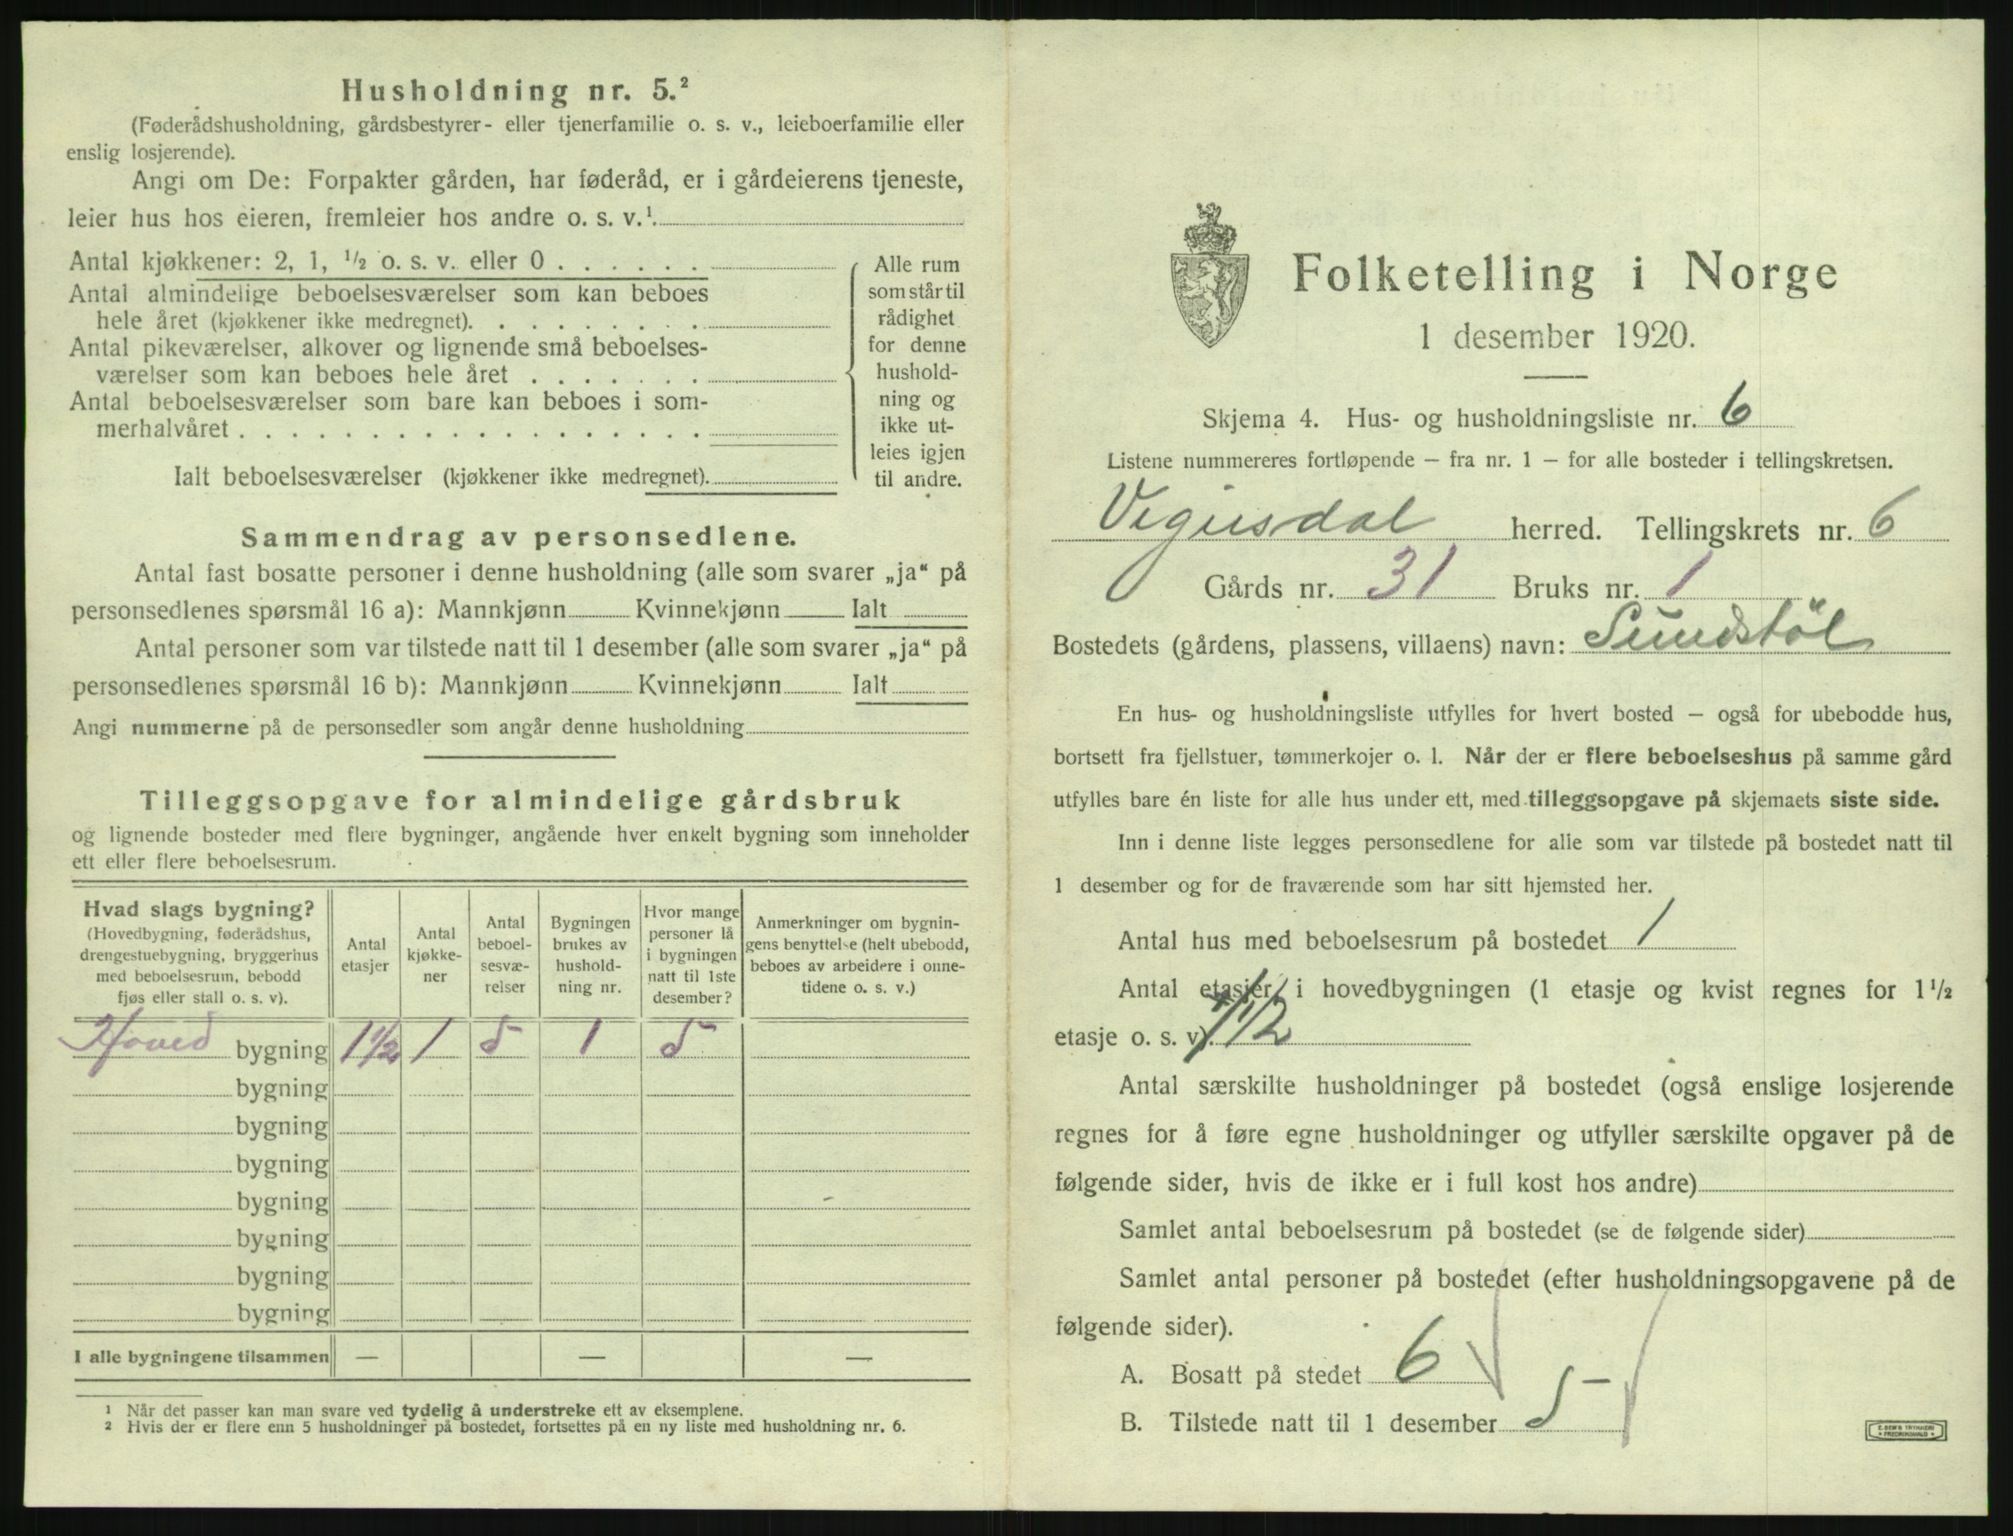 Husholdning nr. 5.²
(Føderådshusholdning, gårdsbestyrer- eller tjenerfamilie o. s. v., leieboerfamilie eller
enslig losjerende).
Angi om De: Forpakter gården, har føderåd, er i gårdeierens tjeneste,
leier hus hos eieren, fremleier hos andre o. s. v.¹.
Antal kjøkkener: 2, 1, ½ o. s. v. eller 0 . . . . . .
Antal almindelige beboelsesværelser som kan beboes
hele året (kjøkkener ikke medregnet). . . . . . . . .
Antal pikeværelser, alkover og lignende små beboelses-
værelser som kan beboes hele året . . . . . . .
Antal beboelsesværelser som bare kan beboes i som-
merhalvåret . . . . . . . . . . . . . . . . . .
Ialt beboelsesværelser (kjøkkener ikke medregnet).
Alle rum
som står til
rådighet
for denne
hushold-
ning og
ikke ut-
leies igjen
til andre.
Sammendrag av personsedlene.
Antal fast bosatte personer i denne husholdning (alle som svarer „ja“ på
personsedlenes spørsmål 16 a): Mannkjønn Kvinnekjønn Ialt
Antal personer som var tilstede natt til 1 desember (alle som svarer „ja“ på
personsedlenes spørsmål 16 b): Mannkjønn Kvinnekjønn Ialt
Angi nummerne på de personsedler som angår denne husholdning
Tilleggsopgave for almindelige gårdsbruk
og lignende bosteder med flere bygninger, angående hver enkelt bygning som inneholder
ett eller flere beboelsesrum.
Hvad slags bygning?
(Hovedbygning, føderådshus,
drengestuebygning, bryggerhus
med beboelsesrum, bebodd
fjøs eller stall o. s. v).
Antal
etasjer
Antal
kjøkke-
ner
Antal
beboel-
sesvæ-
relser
Bygningen
brukes av
hushold-
ning nr.
Hvor mange
personer lå
i bygningen
natt til 1ste
desember?
Anmerkninger om bygnin-
gens benyttelse (helt ubebodd,
beboes av arbeidere i onne-
tidene o. s. v.)
Hoved bygning 1½ 1 5 1 5
bygning
bygning
bygning
bygning
bygning
bygning
bygning
I alle bygningene tilsammen — — —
¹ Når det passer kan man svare ved tydelig å understreke ett av eksemplene.
² Hvis der er flere enn 5 husholdninger på bostedet, fortsettes på en ny liste med husholdning nr. 6.
Folketelling i Norge
1 desember 1920.
Skjema 4. Hus- og husholdningsliste nr. 6
Listene nummereres fortløpende – fra nr. 1 – for alle bosteder i tellingskretsen.
Vegusdal herred. Tellingskrets nr. 6
Gårds nr. 31 Bruks nr. 1
Bostedets (gårdens, plassens, villaens) navn: Sundstøl
En hus- og husholdningsliste utfylles for hvert bosted – også for ubebodde hus,
bortsett fra fjellstuer, tømmerkojer o. l. Når der er flere beboelseshus på samme gård
utfylles bare én liste for alle hus under ett, med tilleggsopgave på skjemaets siste side.
Inn i denne liste legges personsedlene for alle som var tilstede på bostedet natt til
1 desember og for de fraværende som har sitt hjemsted her.
Antal hus med beboelsesrum på bostedet 1
Antal etasjer i hovedbygningen (1 etasje og kvist regnes for 1½
etasje o. s. v). 1½
Antal særskilte husholdninger på bostedet (også enslige losjerende
regnes for å føre egne husholdninger og utfyller særskilte opgaver på de
følgende sider, hvis de ikke er i full kost hos andre)
Samlet antal beboelsesrum på bostedet (se de følgende sider)
Samlet antal personer på bostedet (efter husholdningsopgavene på de
følgende sider).
A. Bosatt på stedet 6
B. Tilstede natt til 1 desember 5